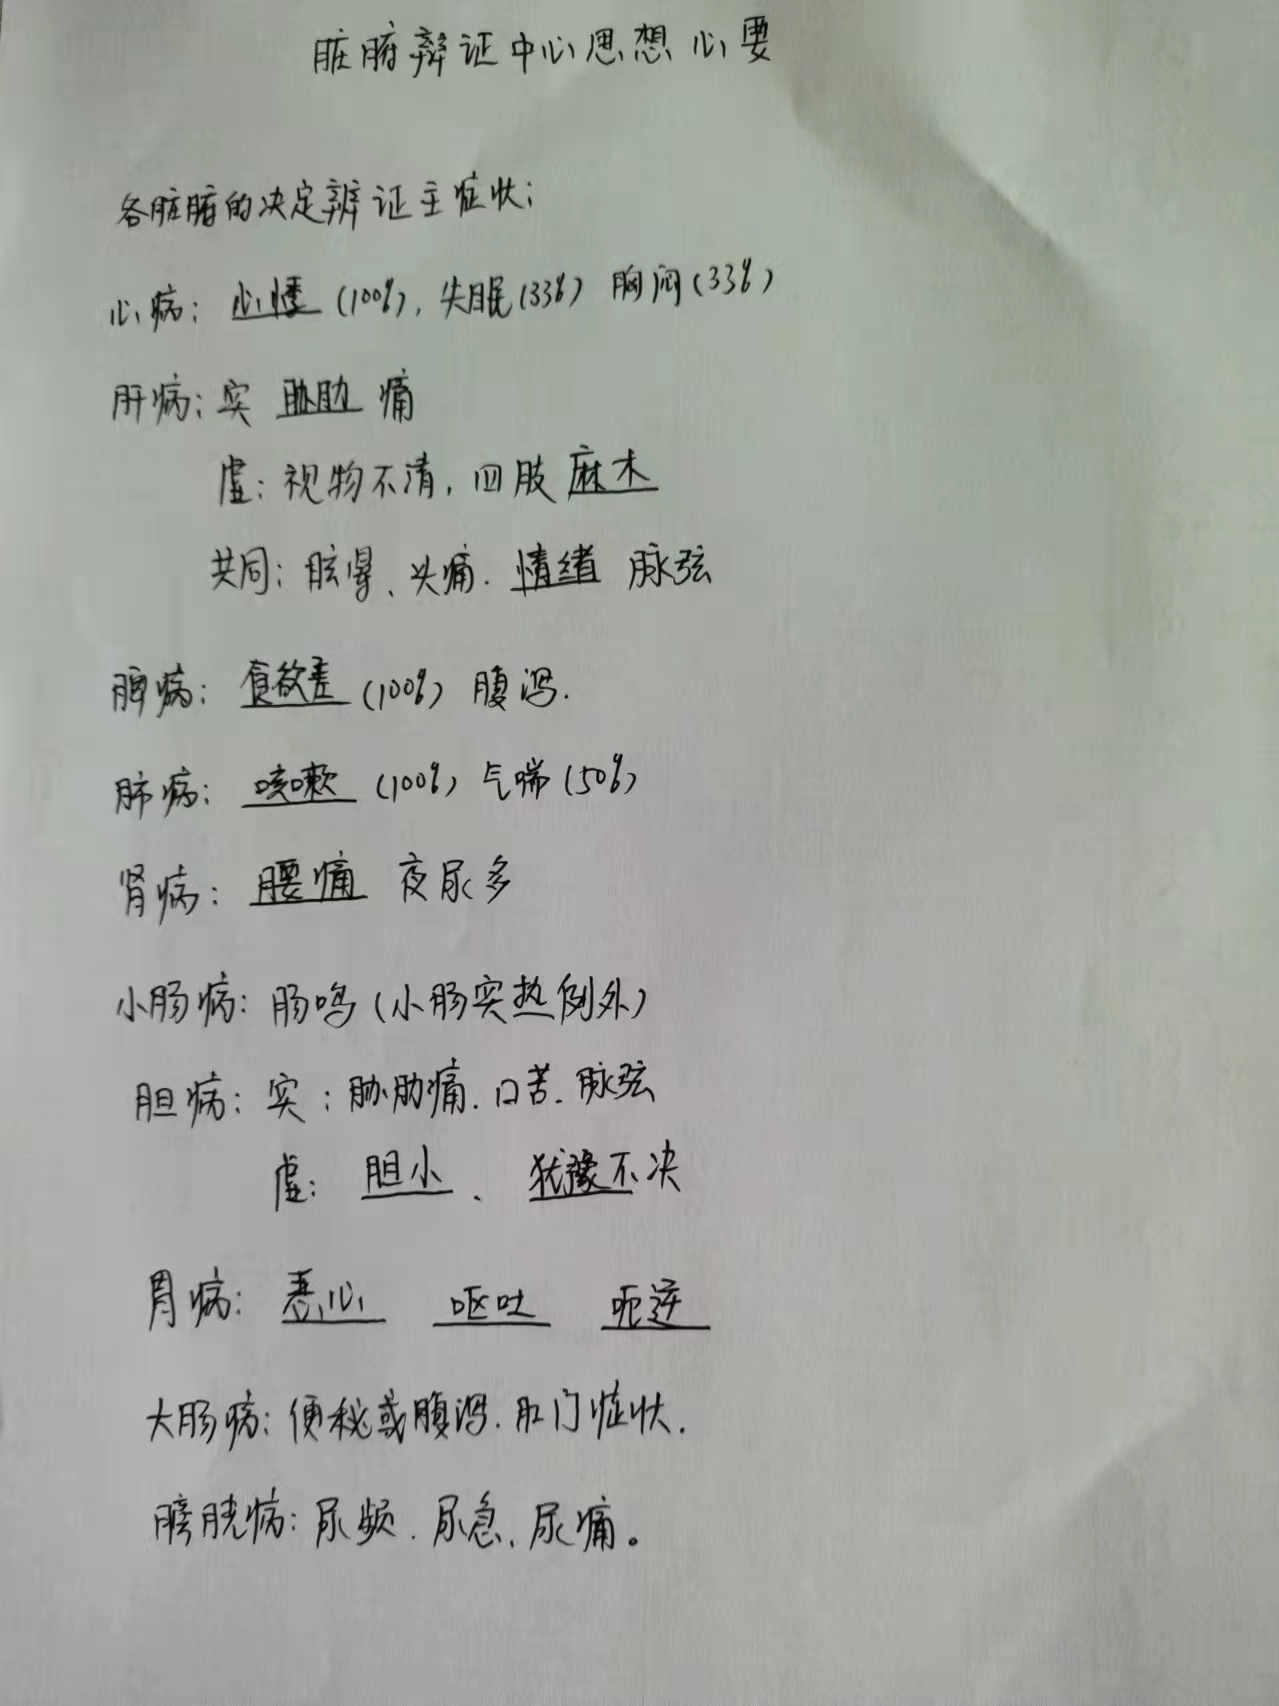 脏腑辩证中心思想心要
各脏腑的决定辨证主症状：
心病：心悸（100%），失眠（33%）胸闷（33%）
肝病：实 胁肋 痛
虚：视物不清，四肢麻木
共同：眩晕、头痛．情绪 脉弦
脾病：食欲差（100%）腹泻．
肺病：咳嗽（100%）气喘（50%）
肾病：腰痛 夜尿多
小肠病：肠鸣（小肠实热例外）
胆病：实：胁肋痛．口苦．脉弦
虚：胆小、犹豫不决
胃病：恶心 呕吐 呃逆
大肠病：便秘或腹泻．肛门症状．
膀胱病：尿频．尿急、尿痛。